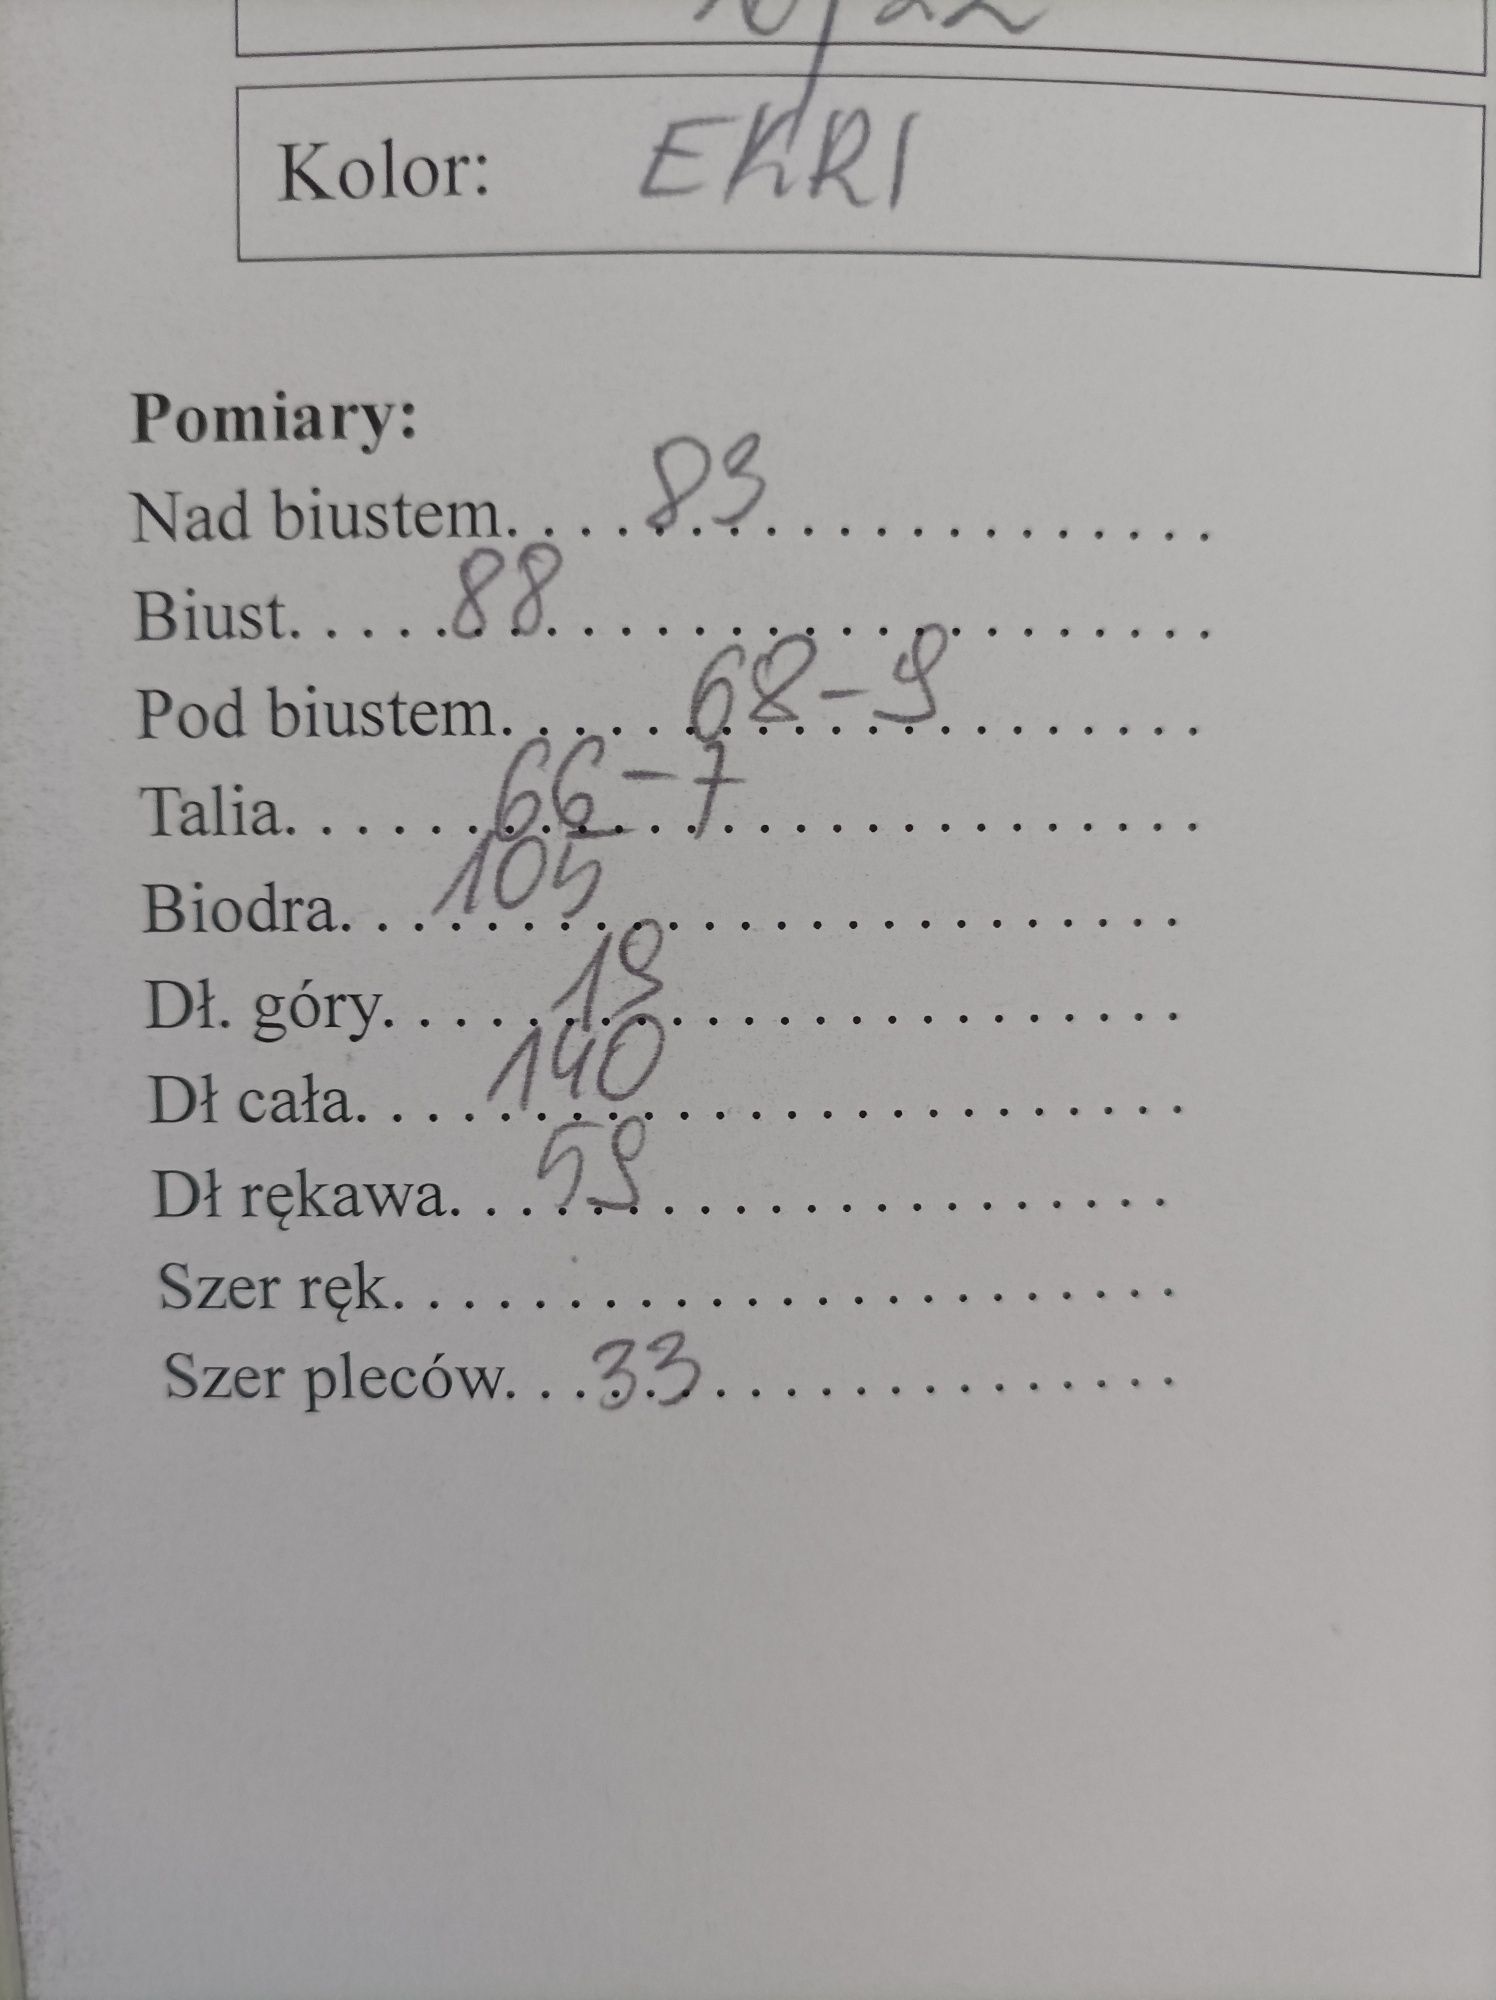 Kolor: EKRI
Pomiary:
Nad biustem....83....................
Biust.....88....................
Pod biustem.....68-9....................
Talia......66-7....................
Biodra....105....................
Dł. góry.....19....................
Dł cała....140....................
Dł rękawa....59....................
Szer ręk......................
Szer pleców...33....................